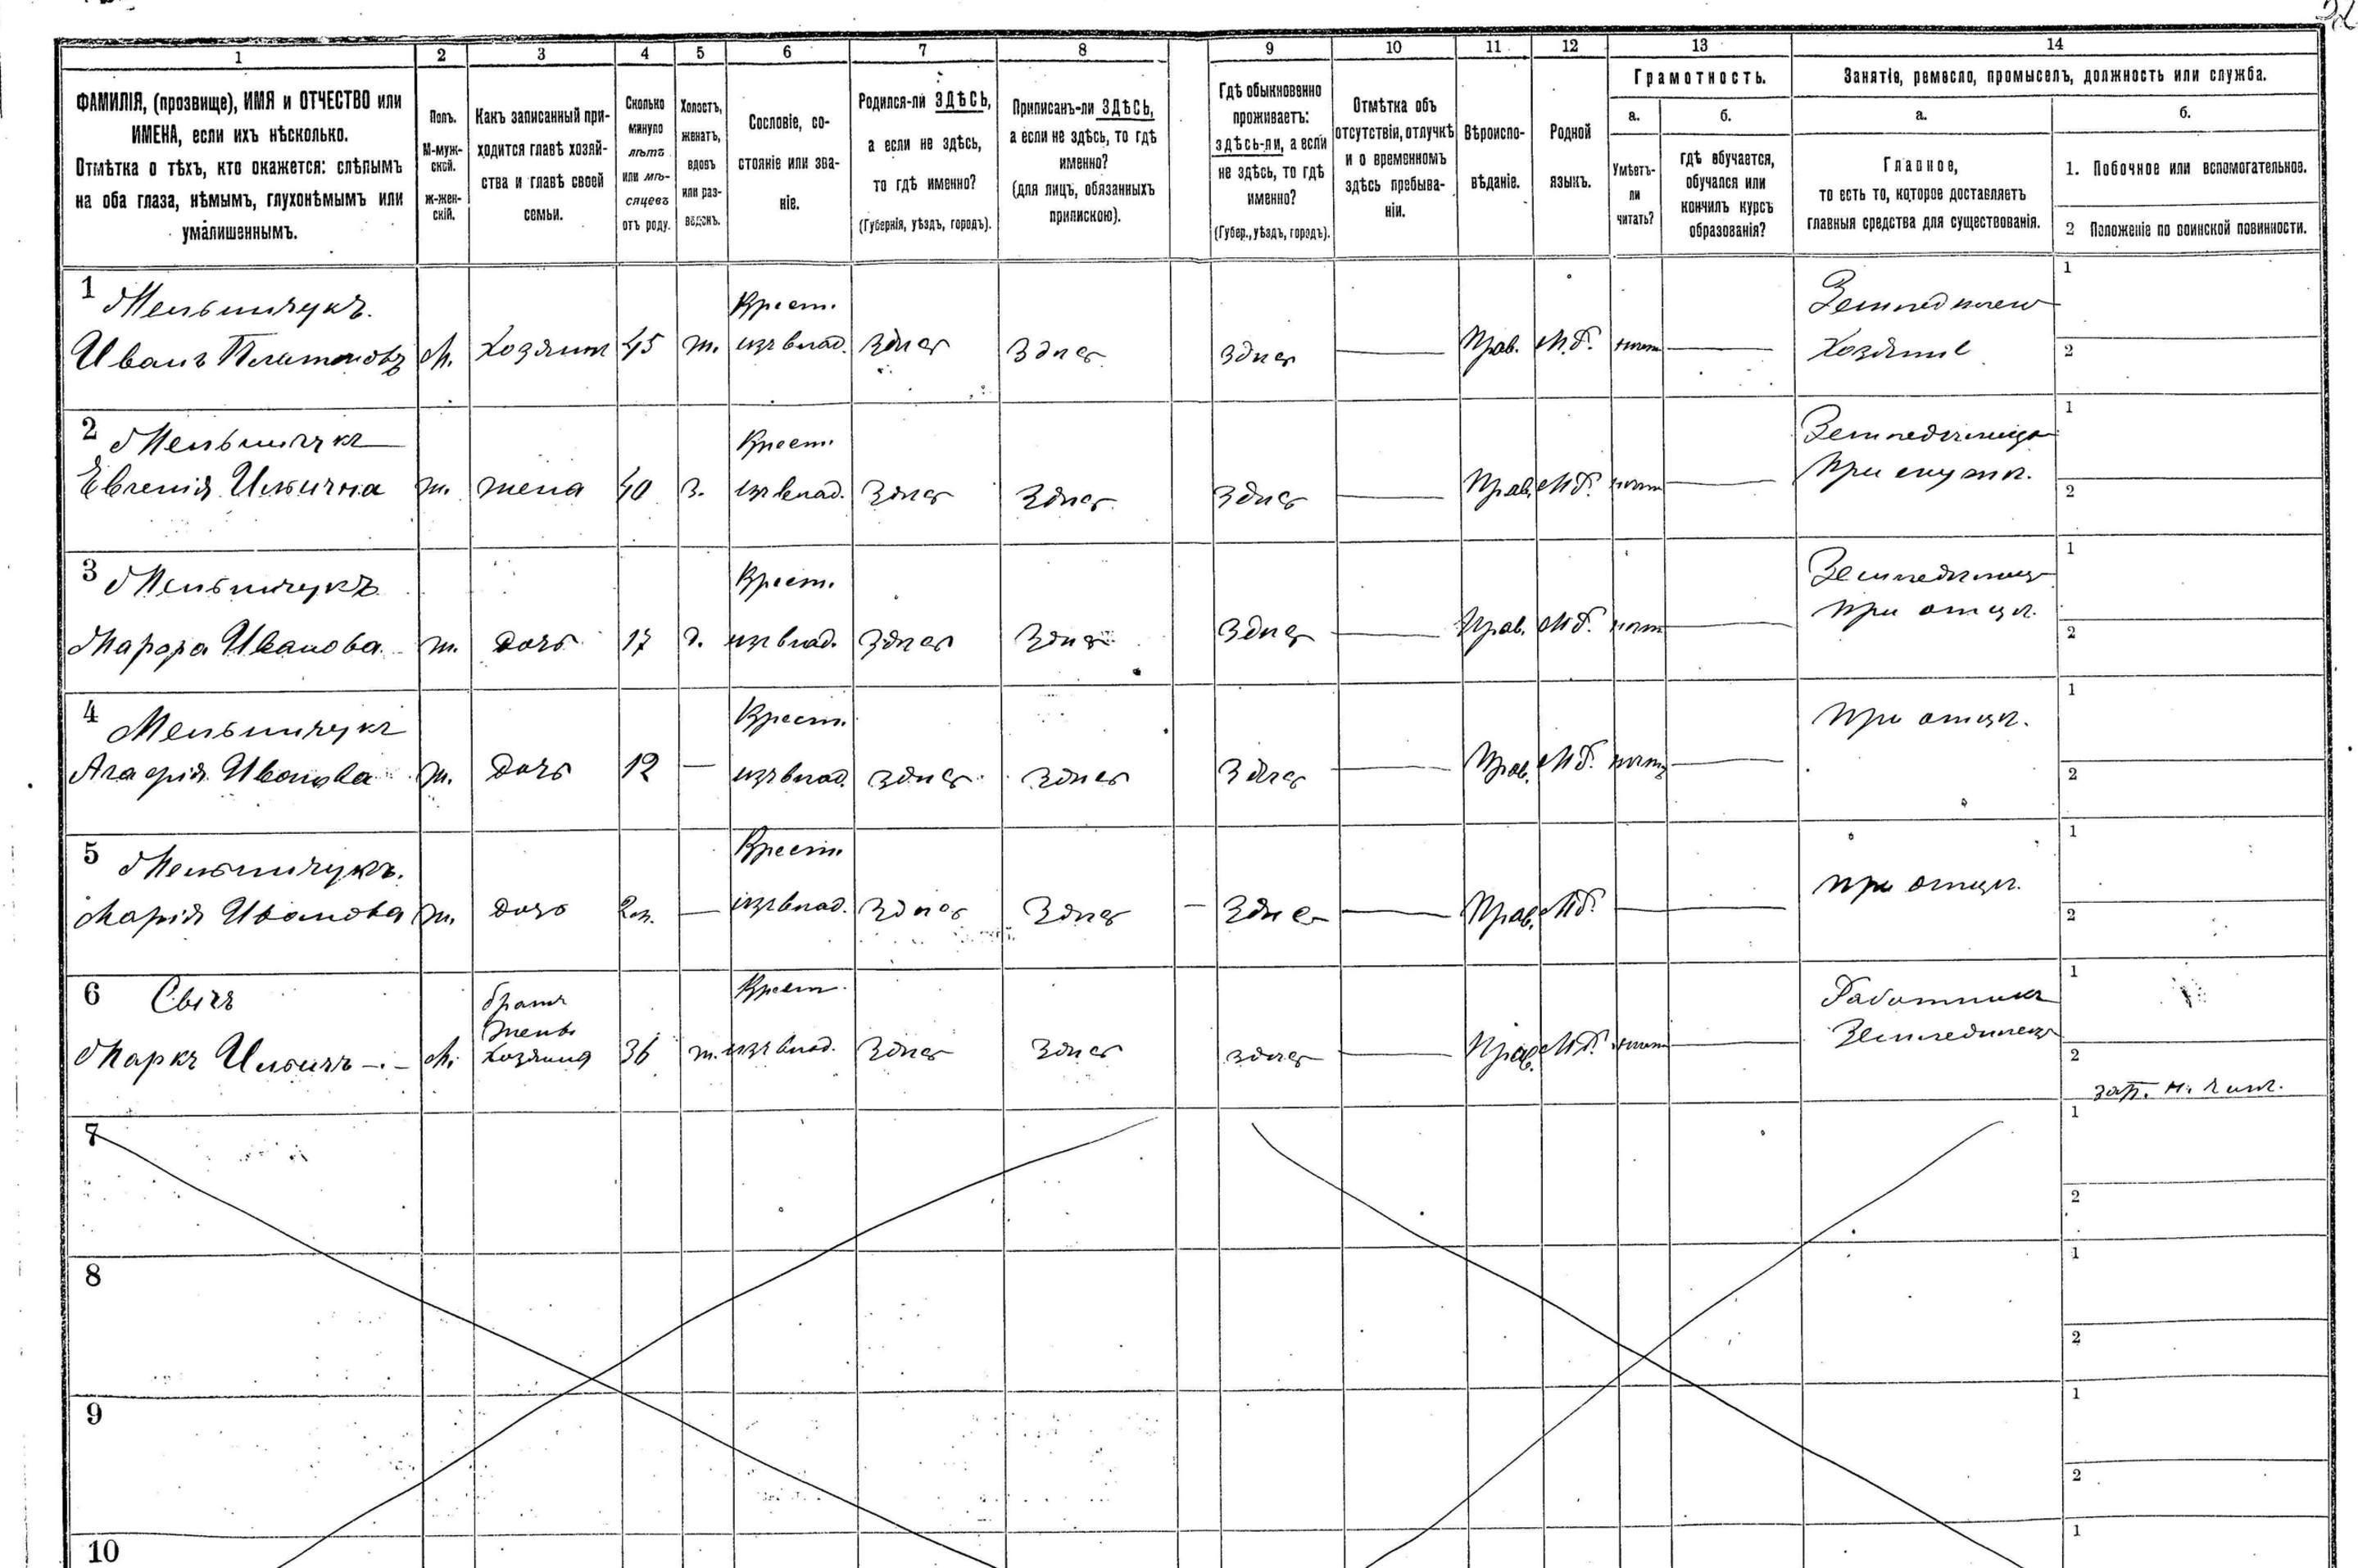 1 2 3 4 5 6 7 8 9 10 11 12 13 14
ФАМИЛІЯ, (прозвище), ИМЯ и ОТЧЕСТВО или
ИМЕНА, если ихъ нѣсколько.
Отмѣтка о тѣхъ, кто окажется: слѣпымъ
на оба глаза, нѣмымъ, глухонѣмымъ или
умалишеннымъ.
Полъ.
М-муж-
ской.
ж-жен-
скій.
Какъ записанный при-
ходится главѣ хозяй-
ства и главѣ своей
семьи.
Сколько
минуло
лѣтъ
или мѣ-
сяцевъ
отъ роду.
Холостъ,
женатъ,
вдовъ
или раз-
веденъ.
Сословіе, со-
стояніе или зва-
ніе.
Родился-ли ЗДѢСЬ,
а если не здѣсь,
то гдѣ именно?
(Губернія, уѣздъ, городъ).
Приписанъ-ли ЗДѢСЬ,
а если не здѣсь, то гдѣ
именно?
(для лицъ, обязанныхъ
припискою).
Гдѣ обыкновенно
проживаетъ:
здѣсь-ли, а если
не здѣсь, то гдѣ
именно?
(Губер., уѣздъ, городъ).
Отмѣтка объ
отсутствіи, отлучкѣ
и о временномъ
здѣсь пребыва-
ніи.
Вѣроиспо-
вѣданіе.
Родной
языкъ.
Грамотность.
а.
Умѣетъ-
ли
читать?
б.
гдѣ обучается,
обучался или
кончилъ курсъ
образованія?
Занятіе, ремесло, промыселъ, должность или служба.
а.
Главное,
то есть то, которое доставляетъ
главныя средства для существованія.
б.
1. Побочное или вспомогательное.
2 Положеніе по воинской повинности.
1 Мельничукъ. Крест. 1
Иванъ Платоновъ М. Хозяинъ 45 ж. изъ влад. Здѣсь Здѣсь Здѣсь — Прав. М.б. нѣтъ — Хозяинъ 2
2 Мельничукъ Крест. 1
Евгенія Ильична ж. жена 40 з. изъ влад. Здѣсь Здѣсь Здѣсь — Прав. М.б. нѣтъ — При мужѣ. 2
3 Мельничукъ Крест. 1
Иванова ж. дочь 17 д. изъ влад. Здѣсь Здѣсь Здѣсь — Прав. М.б. нѣтъ — при отцѣ. 2
4 Мельничукъ Крест. При отцѣ. 1
Агафія Иванова ж. дочь 12 — изъ влад. Здѣсь Здѣсь Здѣсь — Прав. М.б. нѣтъ — 2
5 Мельничукъ. Крест. при отцѣ. 1
Марія Иванова ж. дочь — изъ влад. Здѣсь Здѣсь Здѣсь — Прав. М.б. — 2
6 Свичъ братъ Крест. Работникъ 1
жены
Маркъ Ильичъ М. хозяина 36 ж. изъ влад. Здѣсь Здѣсь здѣсь — Прав. М.б. нѣтъ — Земледѣлецъ 2
зап. н. чин.
7 1
2
8 1
2
9 1
2
10 1